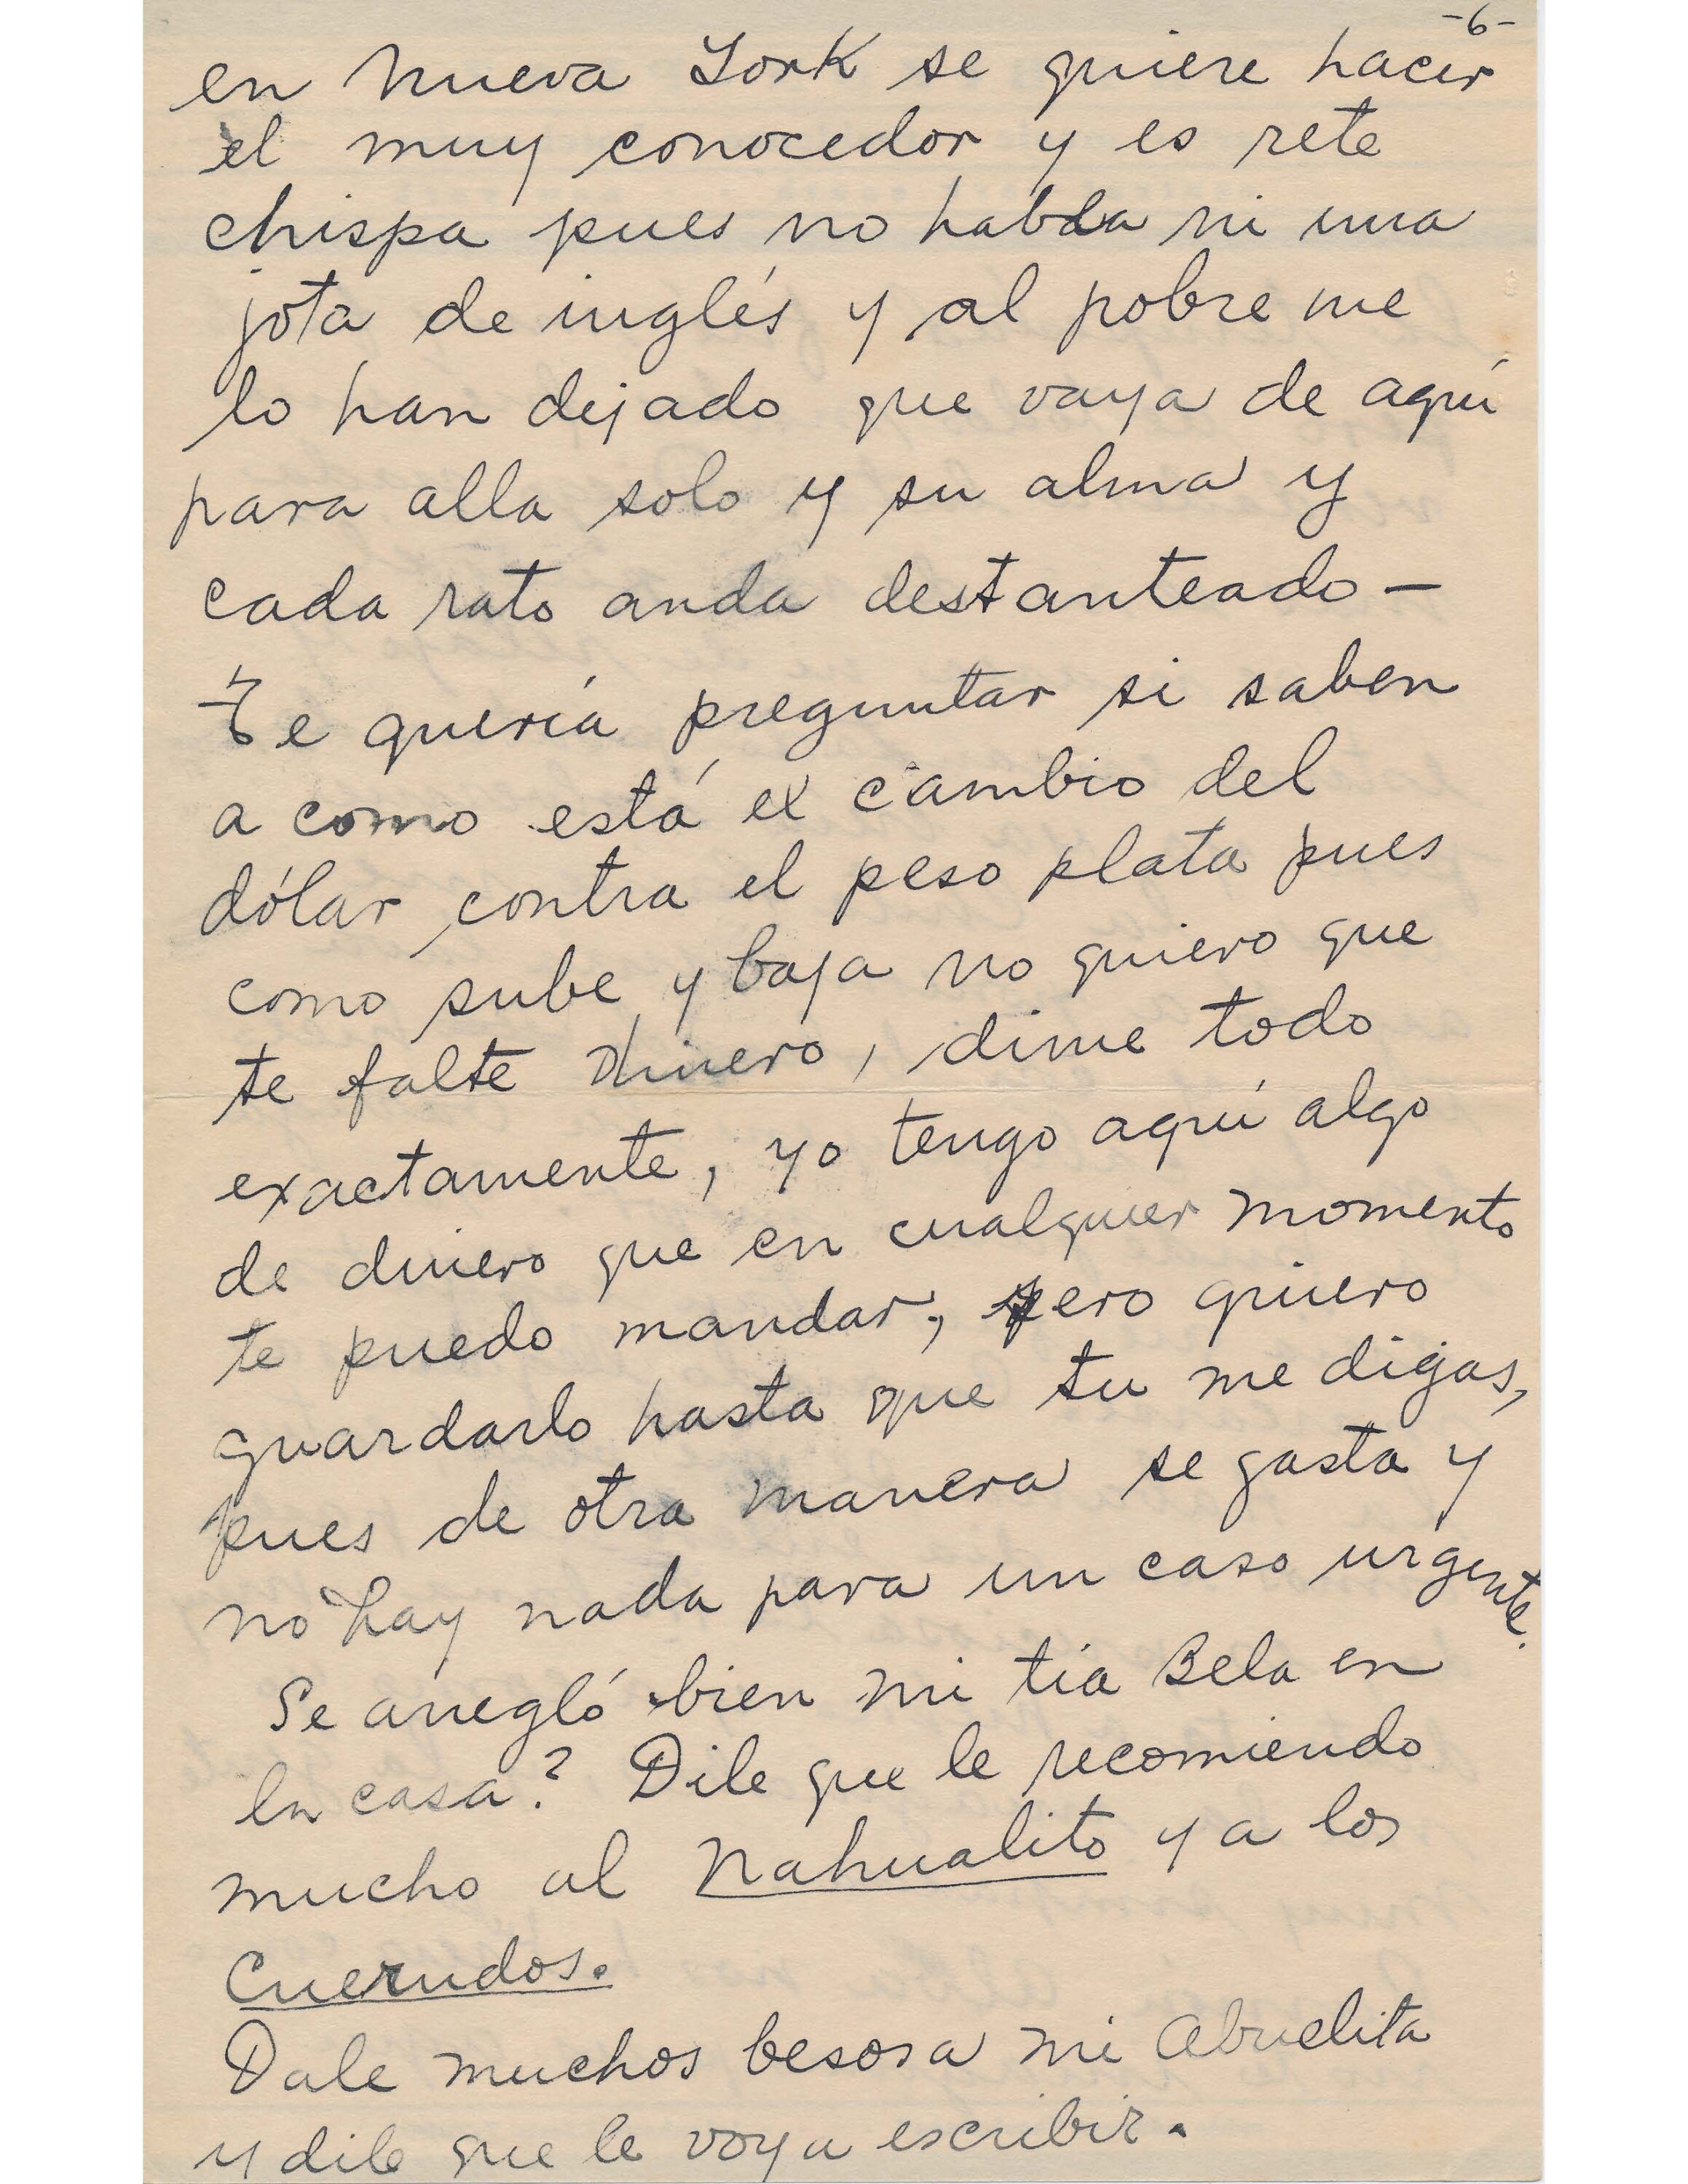 -6-
en Nueva York se quiere hacer
el muy conocedor y es rete
chispa pues no habla ni una
jota de inglés y al pobre me
lo han dejado que vaya de aquí
para alla solo y su alma y
cada rato anda destanteado —
Te quería preguntar si saben
a como está el cambio del
dólar contra el peso plata pues
como sube y baja no quiero que
te falte dinero, dime todo
exactamente, yo tengo aquí algo
de dinero que en cualquier momento
te puedo mandar, pero quiero
guardarlo hasta que tu me digas,
pues de otra manera se gasta y
no hay nada para un caso urgente.
Se arregló bien mi tía Bela en
la casa? Dile que le recomiendo
mucho al Nahualito y a los
Cuerudos.
Dale muchos besos a mi Abuelita
y dile que le voy a escribir.